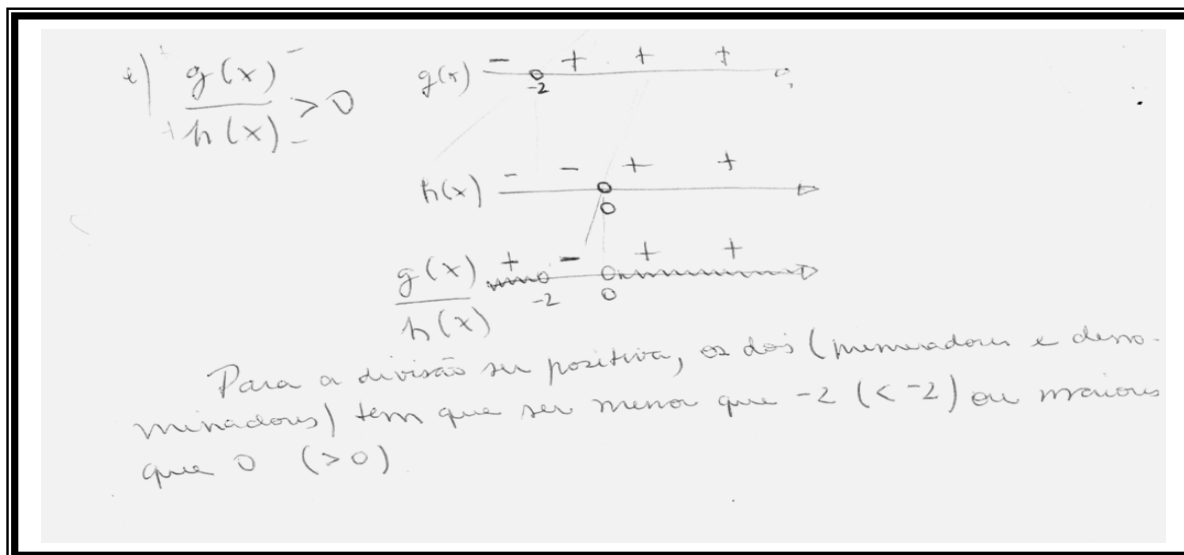 e) g(x)/h(x) > 0
g(x) - + + +
-2
h(x) - - + +
0
g(x)/h(x) + - + +
-2 0
Para a divisão ser positiva, os dois (numeradores e deno-
minadores) tem que ser menor que -2 (< -2) ou maiores
que 0 (>0)